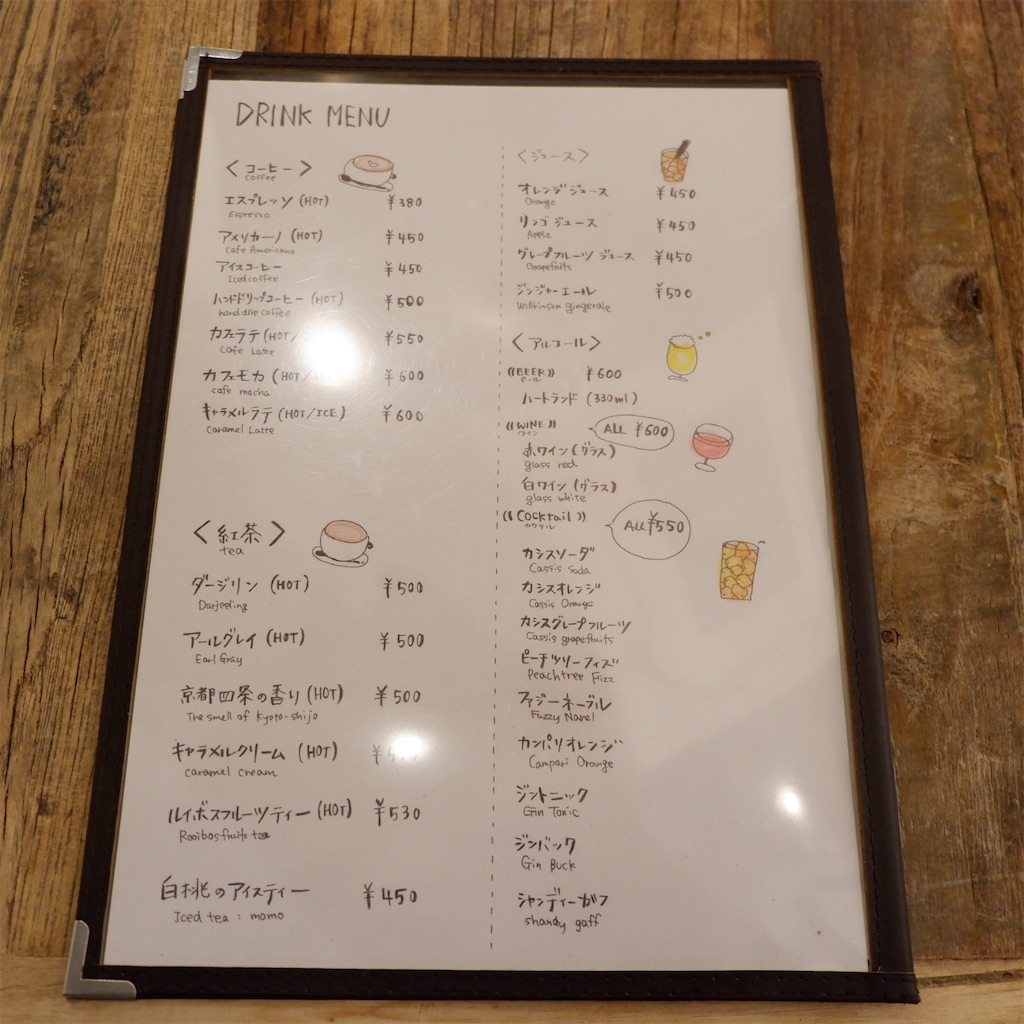 DRINK MENU
〈コーヒー〉
coffee
エスプレッソ (HOT) ¥380
Espresso
アメリカーノ (HOT) ¥450
Cafe Americano
アイスコーヒー ¥450
Iced coffee
ハンドドリップコーヒー (HOT) ¥500
hand drip coffee
カフェラテ (HOT/ ¥550
Cafe Latte
カフェモカ (HOT/ ¥600
cafe mocha
キャラメルラテ (HOT/ICE) ¥600
Caramel Latte
〈紅茶〉
tea
ダージリン (HOT) ¥500
Darjeeling
アールグレイ (HOT) ¥500
Earl Gray
京都四条の香り (HOT) ¥500
The smell of Kyoto-shijo
キャラメルクリーム (HOT)
caramel cream
ルイボスフルーツティー (HOT) ¥530
Rooibos fruits tea
白桃のアイスティー ¥450
Iced tea : momo
〈ジュース〉
オレンジジュース ¥450
Orange
リンゴジュース ¥450
Apple
グレープフルーツジュース ¥450
Grapefruits
ジンジャーエール ¥500
Willkinson gingerale
〈アルコール〉
《BEER》 ¥600
ビール
ハートランド (330ml)
《WINE》 ALL ¥600
ワイン
赤ワイン (グラス)
glass red
白ワイン (グラス)
glass white
《Cocktail》 ALL ¥550
カクテル
カシスソーダ
Cassis soda
カシスオレンジ
Cassis Orange
カシスグレープフルーツ
Cassis grapefruits
ピーチツリーフィズ
Peachtree Fizz
ファジーネーブル
Fuzzy Navel
カンパリオレンジ
Campari Orange
ジントニック
Gin Tonic
ジンバック
Gin Buck
シャンディーガフ
shandy gaff